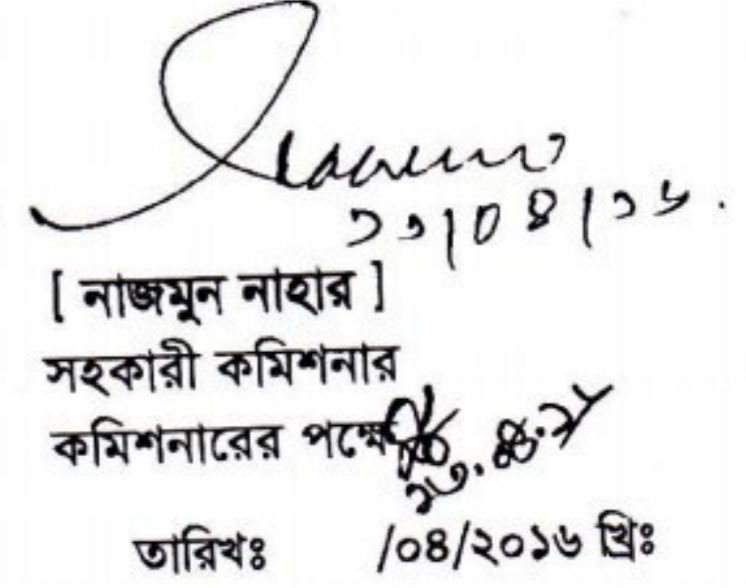 ১১/০৪/১৬.
[ নাজমুন নাহার ]
সহকারী কমিশনার
কমিশনারের পক্ষে
তারিখঃ /০৪/২০১৬ খ্রিঃ